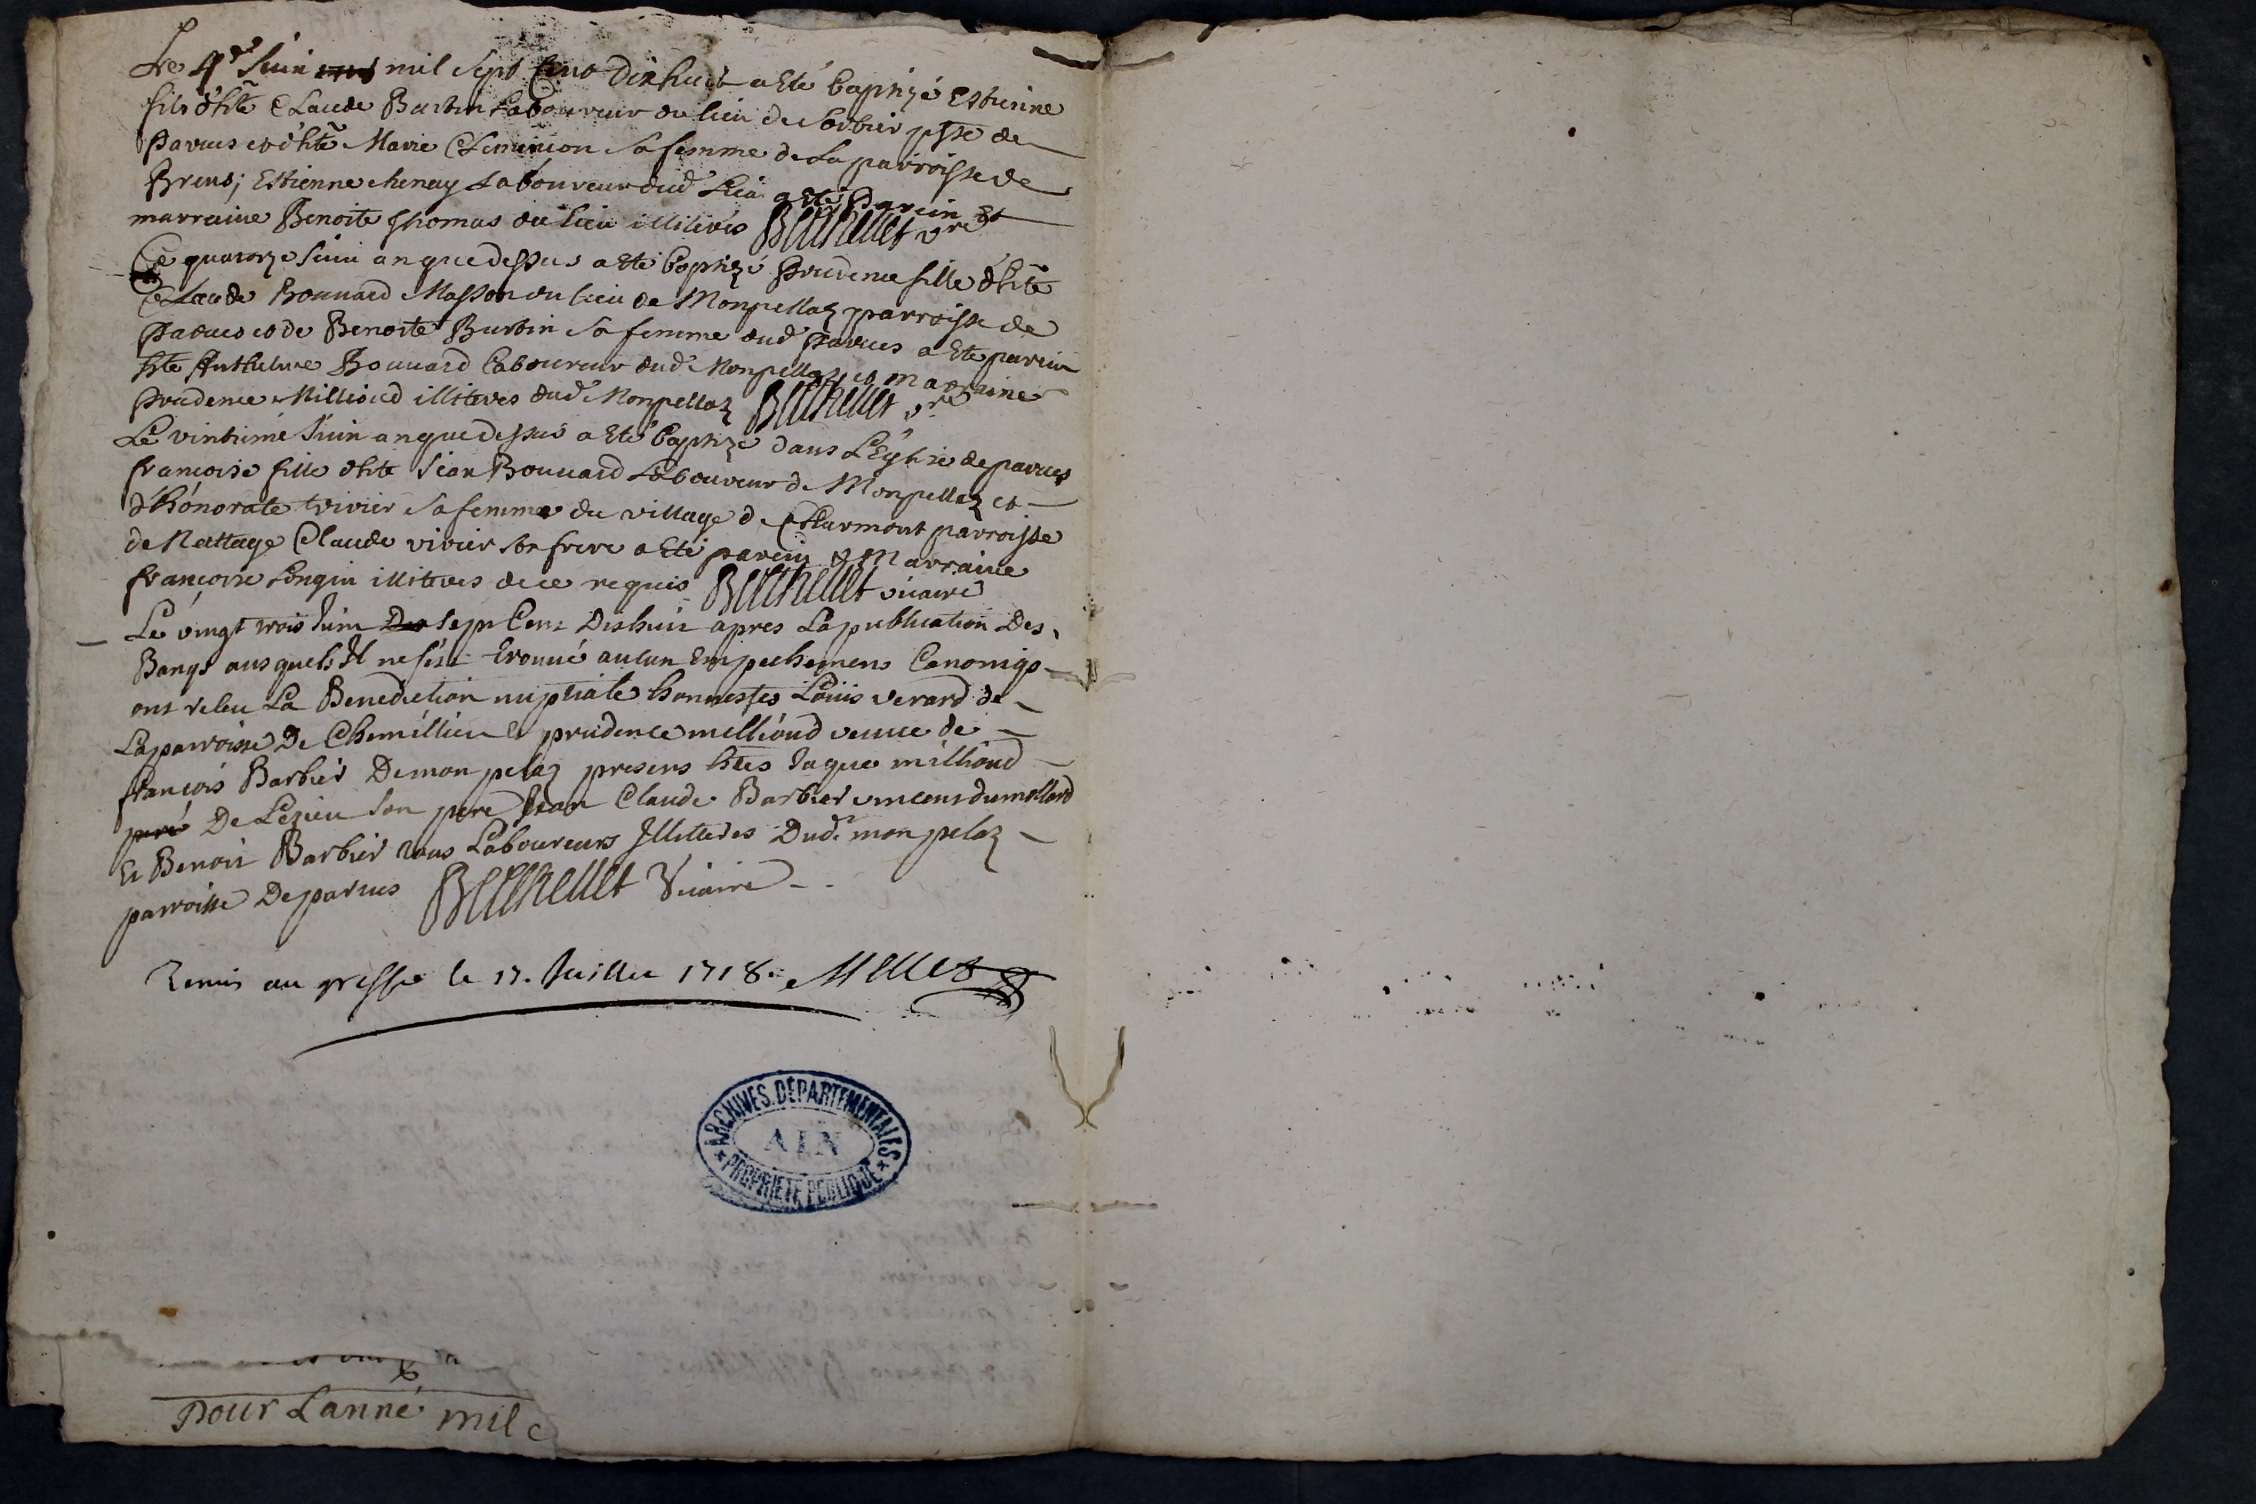 Le 4e Juin mil sept cent dixhuit a Eté baptizé Estienne
fils d'hte Claude Burtin Laboureur du lieu de Sorbier psse de
Parves et d'hte Marie sa femme de La parroisse de
Brens; Estienne chenay Laboureur dud Lieu a Eté Parein Et
marraine Benoite Thomas du lieu illiterés Berthellet vre
Ce quatorze Juin an que dessus a Eté baptizé Prudence fille d'hte
Claude Bouvard Masson du lieu de Monpellaz parroisse de
Parves et de Benoite Burtin sa femme dud Parves a Ete parein
hte Anthelme Bouvard Laboureur dud Monpellaz et marraine
Prudence Millioud illiteres dud Monpellaz Berthellet vre
Le vintieme Juin an que dessus a Eté baptizé dans L'Eglise de parves
francoise fille d'hte Jean Bouvard Laboureur de Monpellaz et
d'honorate vivier sa femme du village de Charmont parroisse
de Nattage Claude vivier son frere a Eté parein & Marraine
francoise Longin illiteres de ce requis Berthellet vicaire
Le vingt trois Juin sept Cent Dishuit apres La publication Des
Bangs ausquels Il ne s'est trouvé aucun Empechemens Canoniqs
ont receu La Benediction nuptiale honnestes Louis verard de
La parroisse De Chemillieu Et prudence millioud veuve de
francois Barbier De monpelaz presens htes Jaque milliond
pere De Lezieu son pere Jean Claude Barbier vincent dumollard
Et Benoit Barbier tous Laboureurs Illitteres Dud. monpelaz
parroisse De parves Berthellet Vicaire
Remis au greffe le 17. Juillet 1718.
ARCHIVES DÉPARTEMENTALES
AIN
PROPRIÉTÉ PUBLIQUE
pour Lanné mil